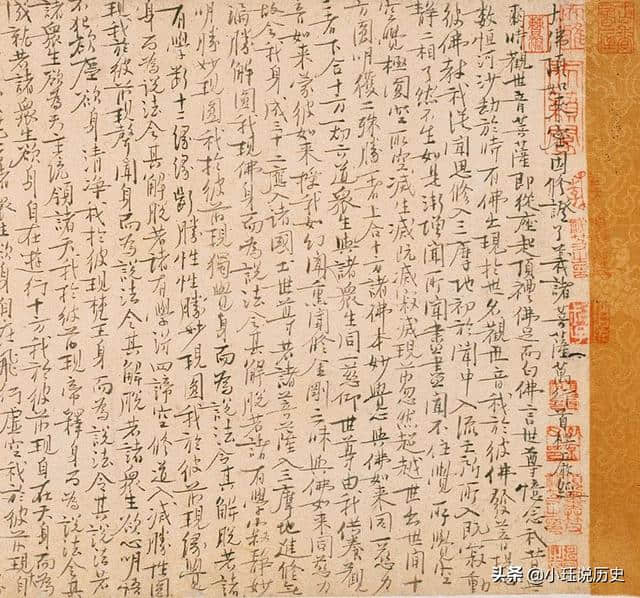 大佛頂如來密因修證了義諸菩薩萬行首楞嚴經
爾時觀世音菩薩即從座起頂禮佛足而白佛言世尊憶念我昔無
數恒河沙劫於時有佛出現於世名觀世音我於彼佛發菩提
彼佛教我從聞思修入三摩地初於聞中入流亡所所入既寂動
靜二相了然不生如是漸增聞所聞盡盡聞不住覺所覺空
空覺極圓空所空滅生滅既滅寂滅現前忽然超越世出世間十
方圓明獲二殊勝一者上合十方諸佛本妙覺心與佛如來同一慈力
二者下合十方一切六道衆生與諸衆生同一悲仰世尊由我供養觀
音如來蒙彼如來授我如幻聞熏聞修金剛三昧與佛如來同慈力
故令我身成三十二應入諸國土世尊若諸菩薩入三摩地進修無
漏勝解圓我現佛身而為說法令其解脫若諸有學寂靜妙
明勝妙現圓我於彼前現獨覺身而為說法令其解脫若諸
有學斷十二緣緣斷勝性勝妙現圓我於彼前現緣覺
身而為說法令其解脫若諸有學得四諦空修道入滅勝性圓
現我於彼前現聲聞身而為說法令其解脫若諸衆生欲心明悟
不犯欲塵欲身清淨我於彼現梵王身而為說法令其解脫若
諸衆生欲為天主統領諸天我於彼前現帝釋身而為說法令其
成就若諸衆生欲身自在遊行十方我於彼前現自在天身而為
衆生欲身自在飛行虛空我於彼前現自
頭条 @小珏说历史